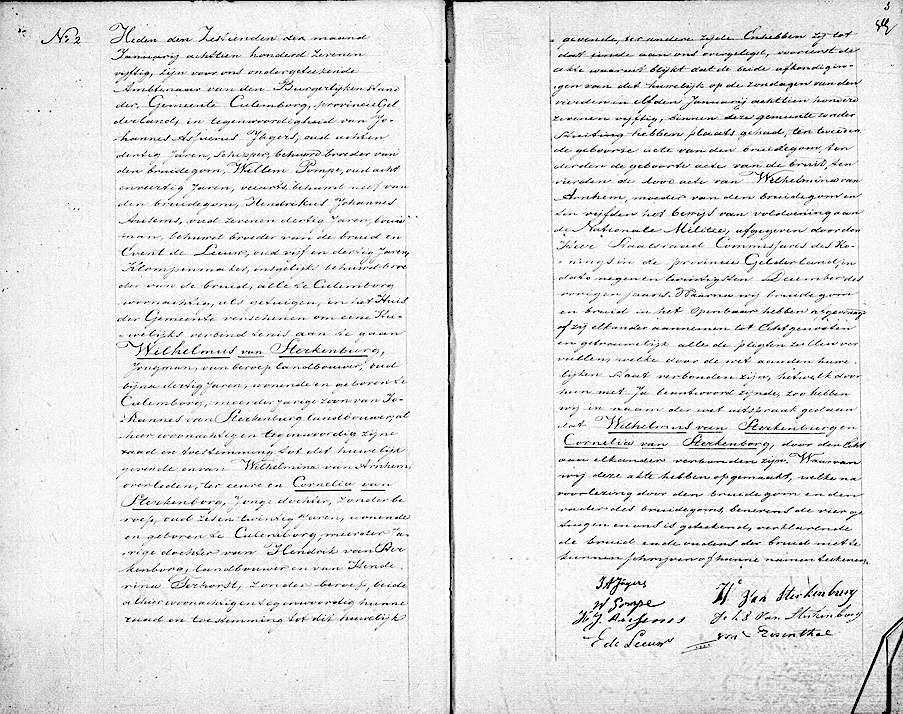 No 2
Heden den Zestienden der maand
Januarij achttien honderd zevenen
vijftig, zijn voor ons ondergeteekende
Ambtenaar van den Burgerlijken Stand
der, Gemeente Culemborg, provincie Gel
derland, in tegenwoordigheid van Jo-
hannes Jagers, oud achten
dertig Jaren, Schipper, behuwd broeder van
den bruidegom, Willem Pompe, oud acht
enveertig Jaren, veearts, behuwd neef van
den bruidegom, Hendrikus Johannes
Ansems, oud zevenen dertig Jaren, bouw
man, behuwd broeder van de bruid en
Evert de Leeuw, oud vijf en dertig Jaren,
Klompenmaker, insgelijks behuwd broe
der van de bruid, alle te Culemborg
woonachtig, als getuigen, in het Huis
der Gemeente verschenen om eene Hu-
welijks verbindtenis aan te gaan
Wilhelmus van Sterkenburg,
Jongman, van beroep landbouwer, oud
bijna dertig Jaren, wonende en geboren te
Culemborg, meerderjarige zoon van Jo-
hannes van Sterkenburg landbouwer, al
hier woonachtig en tegenwoordig zijne
raad en toestemming tot dit huwelijk
gevende en van Wilhelmina van Arnhem,
overleden, ter eenre en Cornelia van
Sterkenborg, Jonge dochter, zonder be
roep, oud zes en twintig Jaren, wonende
en geboren te Culemborg, meerder ja
rige dochter van Hendrik van Ster
kenborg, landbouwer en van Hende
rina Terhorst, zonder beroep, beide
alhier woonachtig en tegenwoordig hunne
raad en toestemming tot dit huwelijk
3
gevende, ter andere zijde Enhebben zij tot
dat einde aan ons overgelegd, vooreerst de
akte waaruit blijkt dat de beide afkondigin-
gen van dit huwelijk op de zondagen van den
vierden en elfden Januarij achttien honderd
zevenen vijftig, binnen deze gemeente zonder
stuiting hebben plaats gehad, ten tweeden
de geboorte acte van den bruidegom, ten
derden de geboorte acte van de bruid, ten
vierden de dood acte van Wilhelmina van
Arnhem, moeder van den bruidegom en
ten vijfden het bewijs van voldoening aan
de Nationale Militie, afgegeven door den
Heer Staatsraad Commissaris des Ko-
nings in de provincie Gelderland, in
dato negen en twintigsten December des
vorigen jaars. Waarna wij bruidegom
en bruid in het Openbaar hebben afgevraagd
of zij elkander aannemen tot Echtgenooten
en getrouwelijk alle de pligten zullen ver
vullen, welke door de wet aan den huwe
lijken staat verbonden zijn, hetwelk door
hun met Ja beantwoord zijnde, zoo hebben
wij in naam der wet uitspraak gedaan
dat Wilhelmus van Sterkenburg en
Cornelia van Sterkenborg, door den Echt
aan elkanderen verbonden zijn. Waarvan
wij deze akte hebben opgemaakt, welke na
voorlezing door den bruidegom en den
vader des bruidegoms, benevens de vier ge
tuigen en ons is geteekend, verklarende
de bruid en de ouders der bruid niet te
kunnen schrijven of hunne namen teekenen.
Jagers
W Pompe
H J Ansems
E de Leeuw
W Van Sterkenburg
Van Sterkenburg
Rosenthal